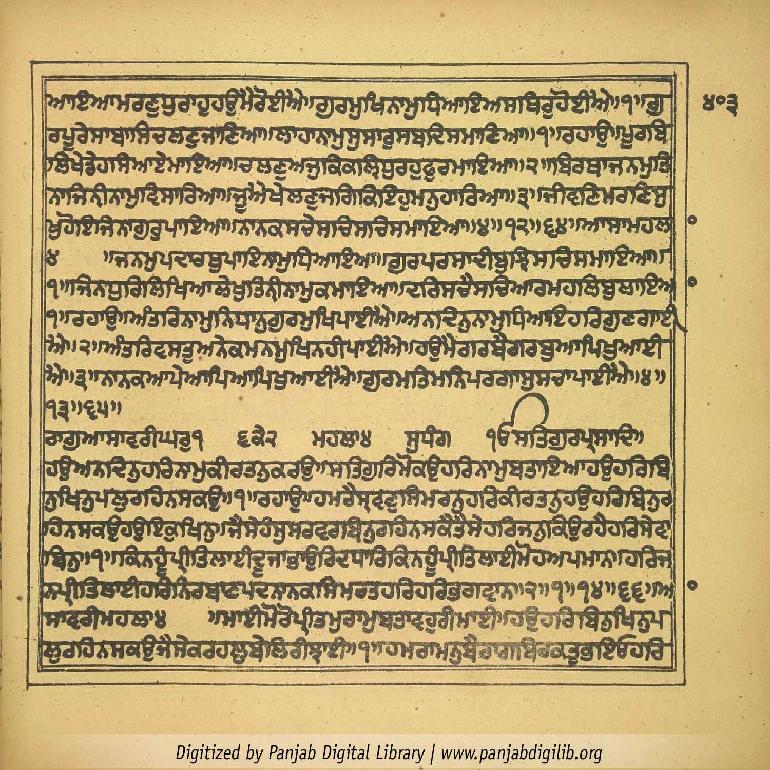 ਆਇਆਮਰਣੁਧੁਰਾਹੁਹਉਮੈਰੋਈਐ॥ਗੁਰਮੁਖਿਨਾਮੁਧਿਆਇਅਸਥਿਰੁਹੋਈਐ॥੧॥ਗੁ ੪੦੩
ਰਪੂਰੇਸਾਬਾਸਿਚਲਣੁਜਾਣਿਆ॥ਲਾਹਾਨਾਮੁਸੁਸਾਰੁਸਬਦਿਸਮਾਣਿਆ॥੧॥ਰਹਾਉ॥ਪੂਰਬਿ
ਲਿਖੇਡੇਹਸਿਆਏਮਾਇਆ॥ਚਲਣੁਅਜੁਕਿਕਲਿਧੁਰਹੁਫੁਰਮਾਇਆ॥੨॥ਬਿਰਥਾਜਨਮੁਤਿ
ਨਾਜਿਨੀਨਾਮੁਵਿਸਾਰਿਆ॥ਜੂਐਖੇਲਣੁਜਗਿਕਿਇਹੁਮਨੁਹਾਰਿਆ॥੩॥ਜੀਵਣਿਮਰਣਿਸੁ
ਖੁਹੋਇਜਿਨਾਗੁਰੁਪਾਇਆ॥ਨਾਨਕਸਚੇਸਚਿਸਚਿਸਮਾਇਆ॥੪॥੧੨॥੬੪॥ਆਸਾਮਹਲਾ
੪ ॥ਜਨਮੁਪਦਾਰਥੁਪਾਇਨਾਮੁਧਿਆਇਆ॥ਗੁਰਪਰਸਾਦੀਬੁਝਿਸਚਿਸਮਾਇਆ॥
੧॥ਜਿਨਧੁਰਿਲਿਖਿਆਲੇਖੁਤਿਨੀਨਾਮੁਕਮਾਇਆ॥ਦਰਿਸਚੈਸਚਿਆਰਮਹਲਿਬੁਲਾਇਆ
੧॥ਰਹਾਉ॥ਅੰਤਰਿਨਾਮੁਨਿਧਾਨੁਗੁਰਮੁਖਿਪਾਈਐ॥ਅਨਦਿਨੁਨਾਮੁਧਿਆਇਹਰਿਗੁਣਗਾਈ
ਐ॥੨॥ਅੰਤਰਿਵਸਤੁਅਨੇਕਮਨਮੁਖਿਨਹੀਪਾਈਐ॥ਹਉਮੈਗਰਬੈਗਰਬੁਆਪਿਖੁਆਈ
ਐ॥੩॥ਨਾਨਕਆਪੇਆਪਿਆਪਿਖੁਆਈਐ॥ਗੁਰਮਤਿਮਨਿਪਰਗਾਸੁਸਚਾਪਾਈਐ॥੪॥
੧੩॥੬੫॥
ਰਾਗੁਆਸਾਵਰੀਘਰੁ੧ ੬ਕੇ੨ ਮਹਲਾ੪ ਸੁਧੰਗ ੧ਓਸਤਿਗੁਰਪ੍ਰਸਾਦਿ॥
ਹਉਅਨਦਿਨੁਹਰਿਨਾਮੁਕੀਰਤਨੁਕਰਉ॥ਸਤਿਗੁਰਿਮੋਕਉਹਰਿਨਾਮੁਬਤਾਇਆਹਉਹਰਿਬਿ
ਨੁਖਿਨੁਪਲੁਰਹਿਨਸਕਉ॥੧॥ਰਹਾਉ॥ਹਮਰੈਸ੍ਰਵਣੁਸਿਮਰਨੁਹਰਿਕੀਰਤਨੁਹਉਹਰਿਬਿਨੁਰ
ਹਿਨਸਕਉਹਉਇਕੁਖਿਨੁ॥ਜੈਸੇਹੰਸੁਸਰਵਰਬਿਨੁਰਹਿਨਸਕੈਤੈਸੇਹਰਿਜਨੁਕਿਉਰਹੈਹਰਿਸੇਵਾ
ਬਿਨੁ॥੧॥ਕਿਨਹੂੰਪ੍ਰੀਤਿਲਾਈਦੂਜਾਭਾਉਰਿਦਧਾਰਿਕਿਨਹੂੰਪ੍ਰੀਤਿਲਾਈਮੋਹਅਪਮਾਨ॥ਹਰਿਜ
ਨਪ੍ਰੀਤਿਲਾਈਹਰਿਨਿਰਬਾਣਪਦਨਾਨਕਸਿਮਰਤਹਰਿਹਰਿਭਗਵਾਨ॥੨॥੧॥੧੪॥੬੬॥ਆ
ਸਾਵਰੀਮਹਲਾ੪ ॥ਮਾਈਮੋਰੋਪ੍ਰੀਤਮੁਰਾਮੁਬਤਾਵਹੁਰੀਮਾਈ॥ਹਉਹਰਿਬਿਨੁਖਿਨੁਪ
ਲੁਰਹਿਨਸਕਉਜੈਸੇਕਰਹਲੁਬੇਲਿਰੀਝਾਈ॥੧॥ਹਮਰਾਮਨੁਬੈਰਾਗਬਿਰਕਤੁਭਇਓਹਰਿ
Digitized by Panjab Digital Library | www.panjabdigilib.org